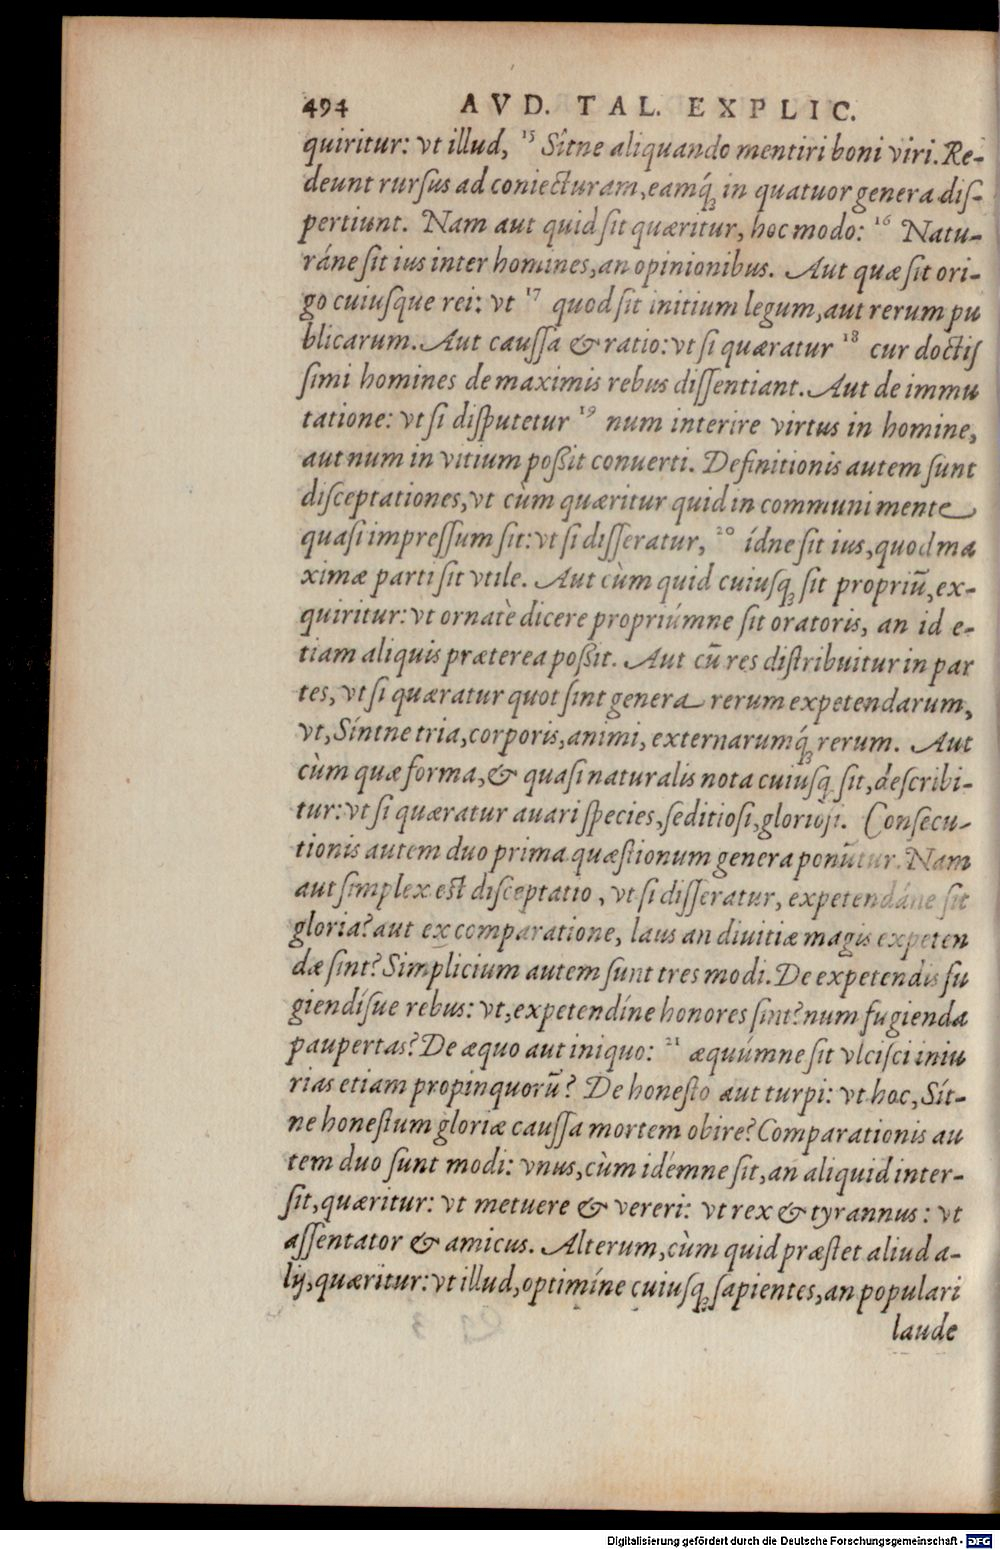 494 AVD. TAL. EXPLIC.
quiritur: vt illud, 15 Sítne aliquando mentiri boni viri. Re-
deunt rursus ad coniecturam, eamq́; in quatuor genera dis-
pertiunt. Nam aut quid sit quæritur, hoc modo: 16 Natu-
ráne sit ius inter homines, an opinionibus. Aut quæ sit ori-
go cuiusque rei: vt 17 quod sit initium legum, aut rerum pu
blicarum. Aut caussa & ratio: vt si quæratur 18 cur doctis
simi homines de maximis rebus dissentiant. Aut de immu
tatione: vt si disputetur 19 num interire virtus in homine,
aut num in vitium poßit conuerti. Definitionis autem sunt
disceptationes, vt cùm quæritur quid in communi mente
quasi impressum sit: vt si disseratur, 20 ídne sit ius, quod ma
ximæ parti sit vtile. Aut cùm quid cuiusq; sit propriū, ex-
quiritur: vt ornatè dicere propriúmne sit oratoris, an id e-
tiam aliquis præterea poßit. Aut cū res distribuitur in par
tes, vt si quæratur quot sint genera rerum expetendarum,
vt, Síntne tria, corporis, animi, externarumq́; rerum. Aut
cùm quæ forma, & quasi naturalis nota cuiusq; sit, describi-
tur: vt si quæratur auari species, seditiosi, gloriosi. Consecu-
tionis autem duo prima quæstionum genera ponūtur. Nam
aut simplex est disceptatio, vt si disseratur, expetendáne sit
gloria? aut ex comparatione, laus an diuitiæ magis expeten
dæ sint? Simplicium autem sunt tres modi. De expetendis fu
giendísue rebus: vt, expetendíne honores sint? num fugienda
paupertas? De æquo aut iniquo: 21 æquúmne sit vlcisci iniu
rias etiam propinquorū? De honesto aut turpi: vt hoc, Sít-
ne honestum gloriæ caussa mortem obire? Comparationis au
tem duo sunt modi: vnus, cùm idémne sit, an aliquid inter-
sit, quæritur: vt metuere & vereri: vt rex & tyrannus: vt
assentator & amicus. Alterum, cùm quid præstet aliud a-
lij, quæritur: vt illud, optimíne cuiusq; sapientes, an populari
laude
Digitalisierung gefördert durch die Deutsche Forschungsgemeinschaft - DFG